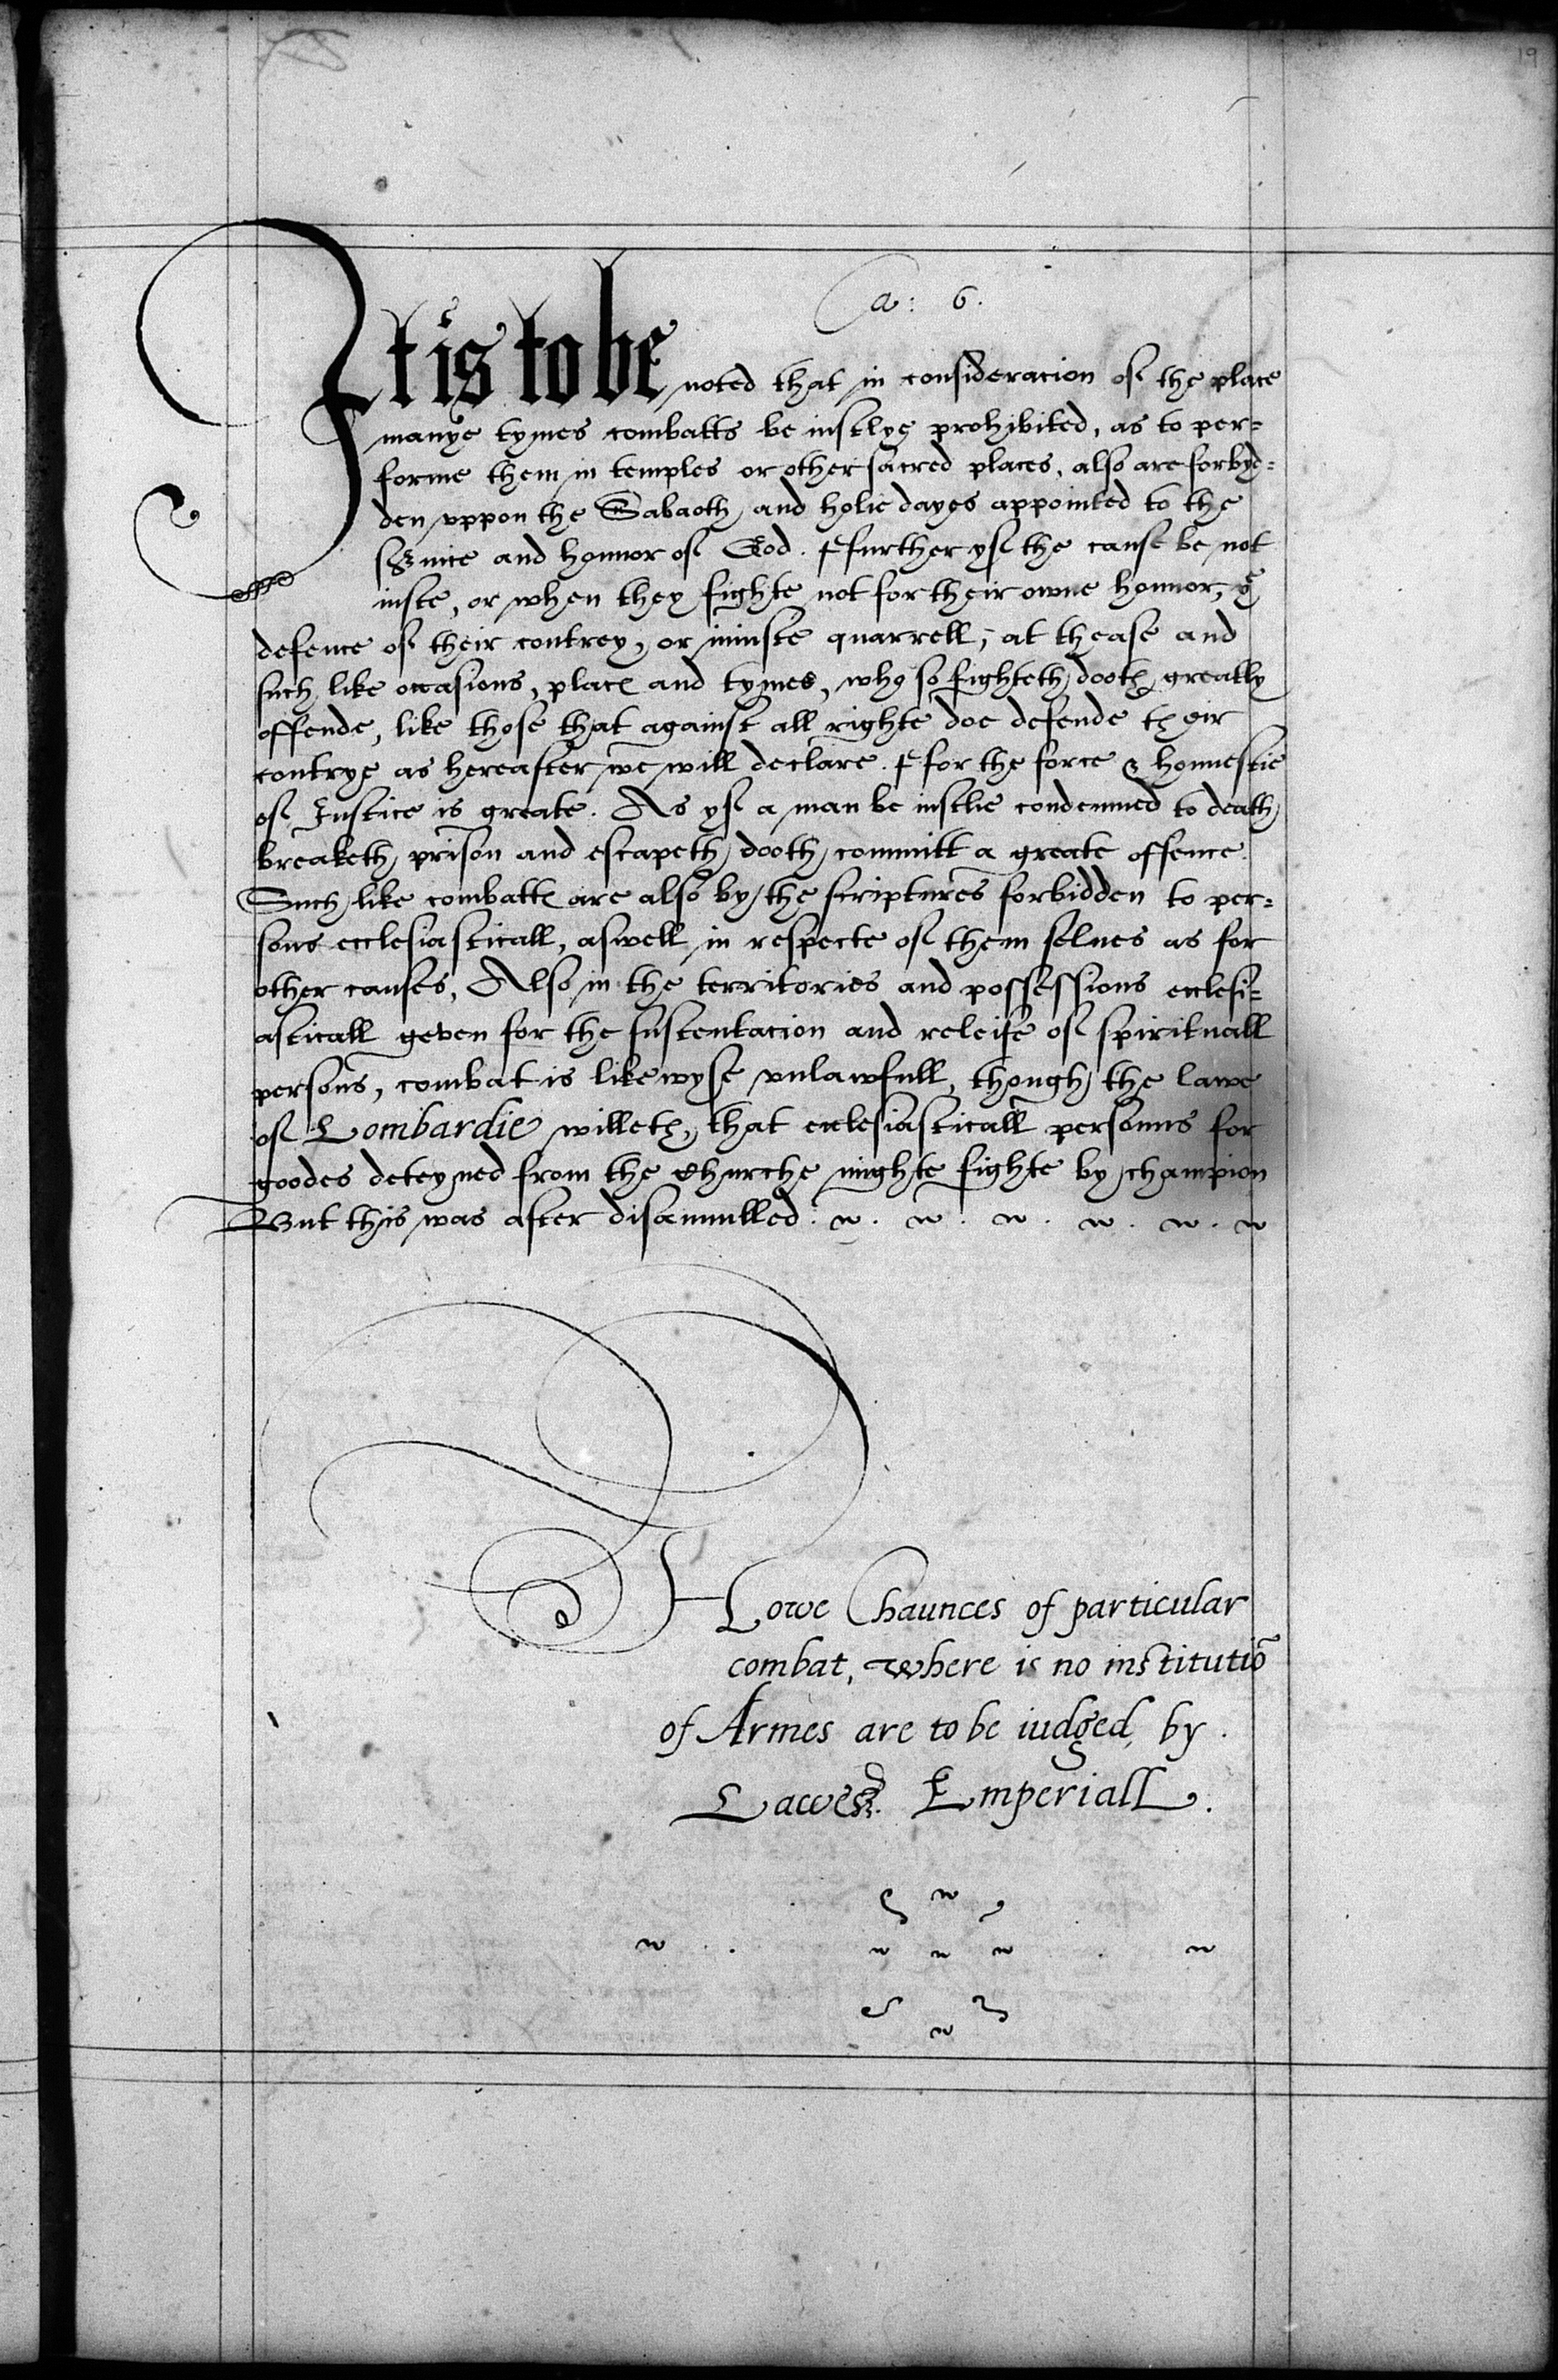 19
Ca: 6.
It is to be noted that in consideracion of the place
manye tymes combatts be iustlye prohibited, as to per=
forme them in temples or other sacred places, also are forbyd=
den vppon the Sabaoth and holie dayes appointed to the
seruice and honnor of God. ffurther yf the cause be not
iuste, or when they fighte not for their owne honnor, ye
defence of their contrey, or iniuste quarrell, at thease and
such like occasions, places and tymes, who so fighteth dooth greatly
offende, like those that against all righte doe defende their
contrye as hereafter we will declare. ffor the force & honnestie
of Iustice is greate. As yf a man be iustlie condemned to death
breaketh prison and escapeth dooth committ a greate offence.
Such like combattes are also by the scriptures forbidden to per=
sons ecclesiasticall, aswell in respecte of them selues as for
other causes, Also in the territories and possessions ecclesi=
asticall geven for the sustentacion and releife of spirituall
persons, combat is likewyse vnlawfull, though the lawe
of Lombardie willeth, that ecclesiasticall personns for
goodes deteyned from the Churche mighte fighte by champion
But this was after disannulled.
Howe Chaunces of particular
combat, where is no institutiõ
of Armes are to be iudged, by
Lawes Emperiall.